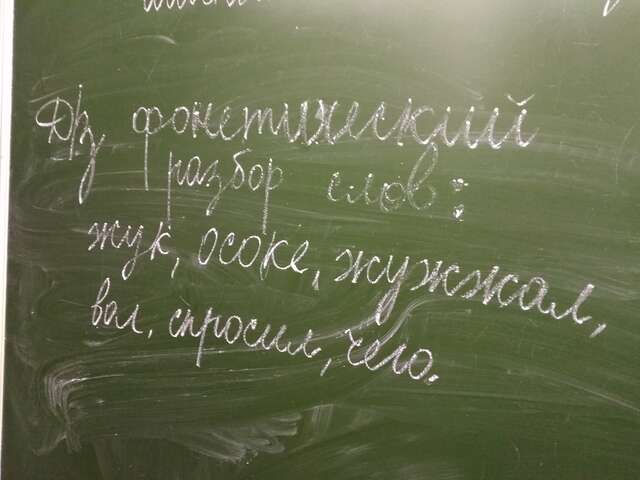 Д/з фонетический
разбор слов:
жук, осоке, жужжал,
вол, спросил, чего.